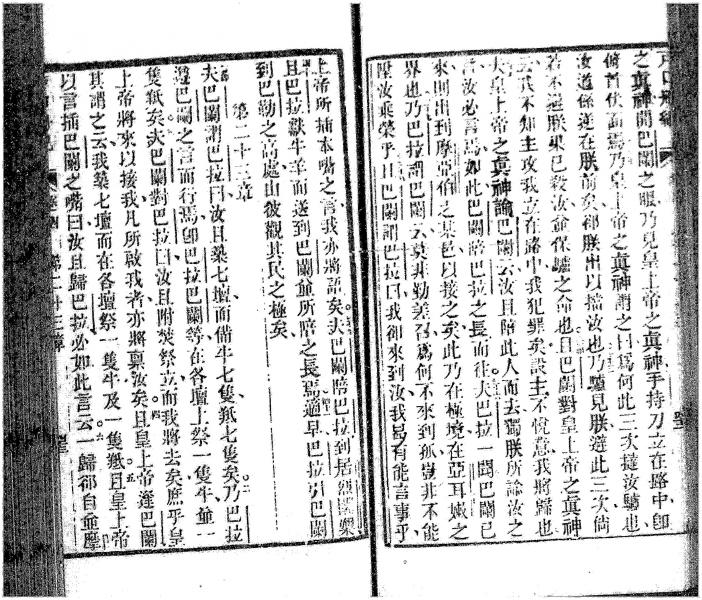 之真神開巴蘭之眼乃見皇上帝之真神手持刀立在路中卽
俯首伏面焉乃皇上帝之真神謂之曰爲何此三次撻汝驢也
汝道係逆在朕前矣却朕出以擋汝也乃驢見朕避此三次倘
若不避朕果已殺汝並保驢之命也且巴蘭對皇上帝之真神
云我不知主攻我立在路中我犯罪矣設主不悅意我將歸也
夫皇上帝之真神諭巴蘭云汝且陪此人而去獨朕所諭汝之
言汝必言焉如此巴蘭陪巴拉之長而往夫巴拉一聞巴蘭已
來則出到摩亞伯之某邑以接之矣此乃在極境在亞耳嫩之
界也乃巴拉謂巴蘭云莫非勤美召爲何不來到孤豈非不能
陞汝乘榮乎且巴蘭謂巴拉曰我卻來到汝我曷有能言事乎
上帝所插本嘴之言我亦將語矣夫巴蘭陪巴拉到
且巴拉獻牛羊而送到巴蘭並所陪之長焉適早巴拉引巴蘭
到巴勒之高處由彼觀其民之極矣
第二十三章
夫巴蘭謂巴拉曰汝且築七壇而備牛七隻羝七隻矣乃巴拉
遵巴蘭之言而行焉卽巴拉巴蘭等在各壇上祭一隻牛並一
隻羝矣夫巴蘭對巴拉曰汝且附焚祭立而我將去矣庶乎皇
上帝將來以接我凡所啟我者亦將稟汝矣且皇上帝逢巴蘭
其謂之云我築七壇而在各壇祭一隻牛及一隻羝且皇上帝
以言插巴蘭之嘴曰汝且歸巴拉必如此言云一歸卻自並摩
第二十三章